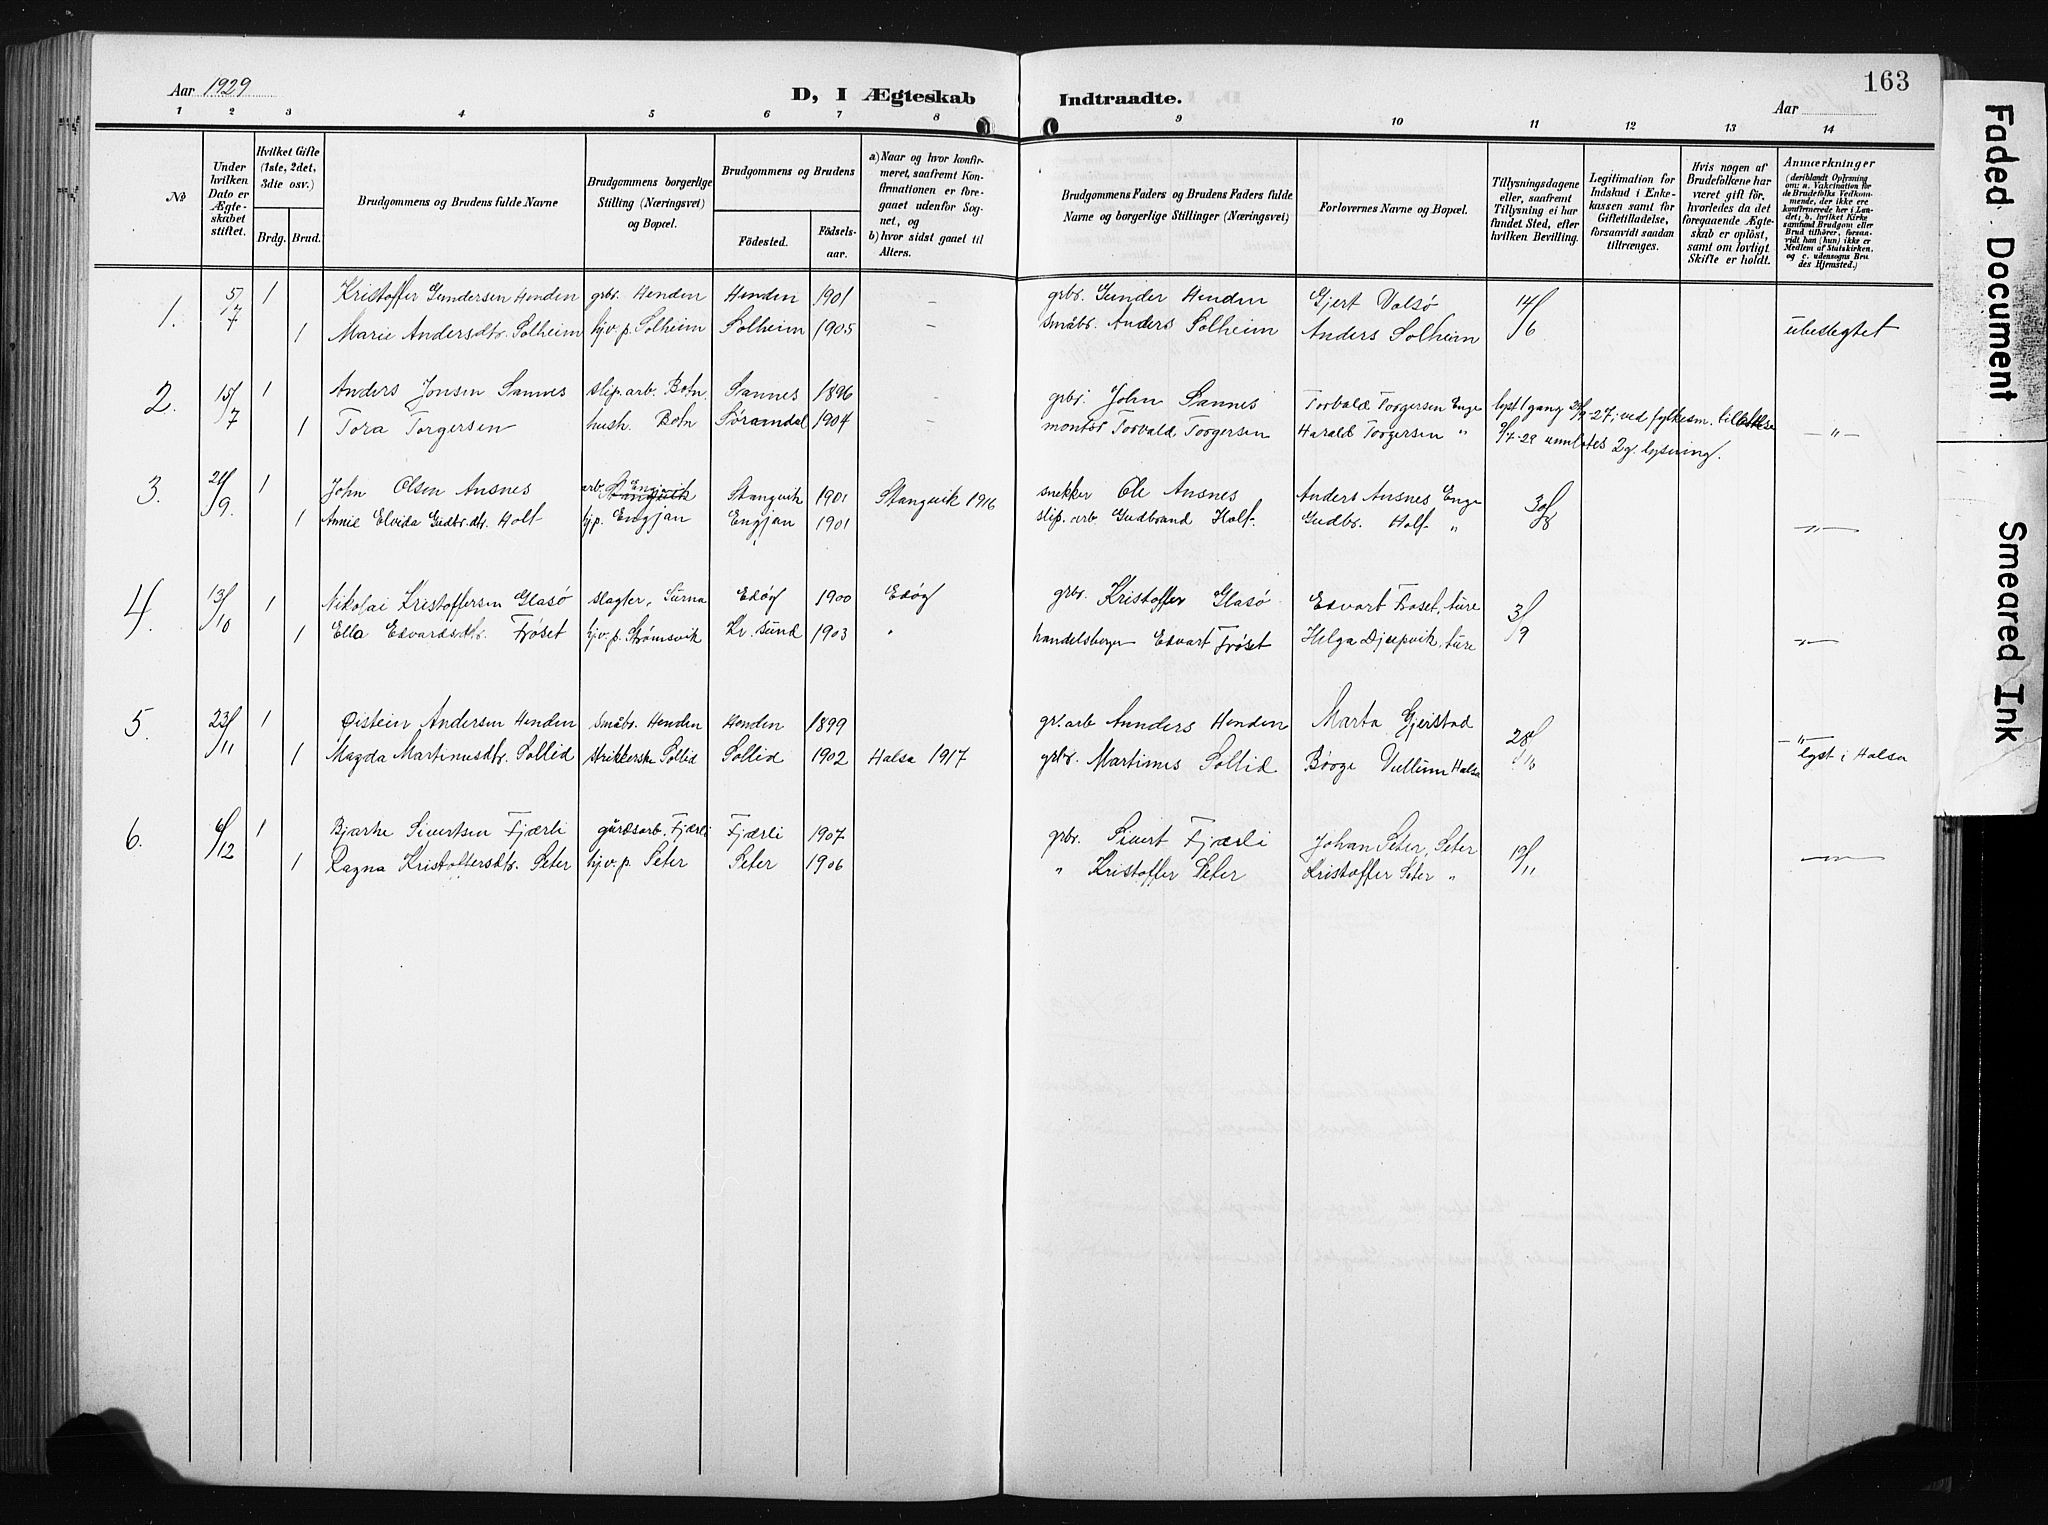 163
Aar 1929
D, I Ægteskab Indtraadte.
Aar
1 2 3 4 5 6 7 8 9 10 11 12 13 14
No
Under hvilken Dato er Ægteskabet stiftet.
Hvilket Gifte (1ste, 2det, 3die osv.)
Brdg. Brud.
Brudgommens og Brudens fulde Navne
Brudgommens borgerlige Stilling (Næringsvei) og Bopæl.
Brudgommens og Brudens
Födested. Födselsaar.
a) Naar og hvor konfirmeret, saafremt Konfirmationen er foregaaet udenfor Sognet, og
b) hvor sidst gaaet til Alters.
Brudgommens Faders og Brudens Faders fulde Navne og borgerlige Stillinger (Næringsvei)
Forlovernes Navne og Bopæl.
Tillysningsdagene eller, saafremt Tillysning ei har fundet Sted, efter hvilken Bevilling.
Legitimation for Indskud i Enkekassen samt for Giftetilladelse, forsaavidt saadan tiltrænges.
Hvis nogen af Brudefolkene har været gift för, hvorledes da det foregaaende Ægteskab er oplöst, samt om lovligt Skifte er holdt.
Anmærkninger (deriblandt Oplysning om: a. Vakcination for de Brudefolks Vedkommende, der ikke ere konfirmerede her i Landet; b. hvilket Kirkesamfund Brudgom eller Brud tilhörer, forsaavidt han (hun) ikke er Medlem af Statskirken. og c. udensogns Brudes Hjemsted.)
1. 5/7 1 Kristoffer Gundersen Henden grbr. Henden Henden 1901 – grbr. Gunder Henden Gjert Valsø 14/6
1 Marie Andersdtr. Solheim hjv. p. Solheim Solheim 1905 – småbr. Anders Solheim Anders Solheim ubeslegtet
2. 15/7 1 Anders Jonsen Sannes slip. arb. Botn Sannes 1896 grbr. John Sannes Torvald Torgersen Enge lyst 1 gang -27, ved fylkesm. tillatelse
1 Tora Torgersen hush. Botn 1904 – montør Torvald Torgersen Harald Torgersen " 9/7-29 unnlates 2 g. lysning. – " –
3. 21/9 1 John Olsen Ansnes arb. Engjan Stangvik Stangvik 1901 Stangvik 1916 snekker Ole Ansnes Anders Ansnes Enge 30/8
1 Annie Elvida Gudbr.dtr. Holt hjp. Engjan Engjan 1901 slip. arb Gudbrand Holt. Gudbr. Holt " – " –
4. 13/10 1 Nikolai Kristoffersen Glasø slagter, Surna Edøy 1900 Edøy grbr. Kristoffer Glasø Edvart Frøset, Ture 3/9
1 Ella Edvardsdtr. Frøset hjv. p. Strømsvik Kr. sund 1903 " handelsborger Edvart Frøset Helga Djupvik, Ture – " –
5. 23/11 1 Øistein Andersen Henden småbr. Henden Henden 1899 gr. arb Annders Henden Marta Gjeistad 28/10
1 Magda Martinusdtr. Sollid strikkerske Sollid Sollid 1902 Halsa 1917 grbr. Martinus Sollid Børge Vullum Halsa – " – lyst i Halsa
6. 6/12 1 Bjarke Sivertsen Fjærli gårdsarb. Fjærli Fjærli 1907 grbr. Sivert Fjærli Johan Seter, Seter 19/11
1 Ragna Kristoffersdtr. Seter hjv. p. Seter Seter 1906 " Kristoffer Seter Kristoffer Seter " – " –
Faded Document
Smeared Ink